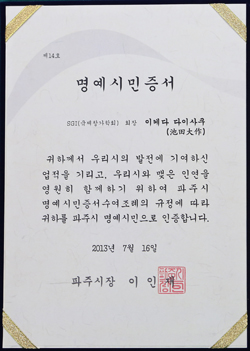 제14호
명예시민증서
SGI(국제창가학회) 회장 이케다 다이사쿠
(池田大作)
귀하께서 우리시의 발전에 기여하신
업적을 기리고, 우리시와 맺은 인연을
영원히 함께하기 위하여 파주시
명예시민증서수여조례의 규정에 따라
귀하를 파주시 명예시민으로 인증합니다.
2013년 7월 16일
파주시장 이인재